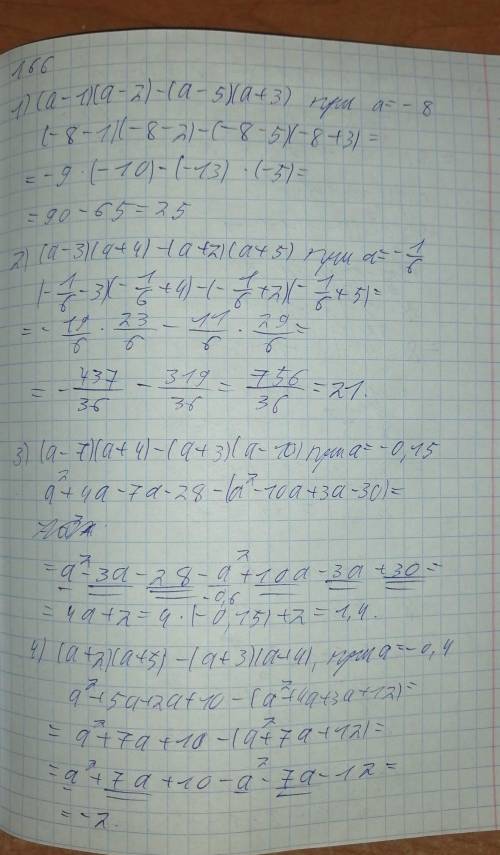 166
1) (a-1)(a-2)-(a-5)(a+3) при a=-8
(-8-1)(-8-2)-(-8-5)(-8+3)=
=-9·(-10)-(-13)·(-5)=
=90-65=25
2) (a-3)(a+4)-(a+2)(a+5) при a=-1/6
(-1/6-3)(-1/6+4)-(-1/6+2)(-1/6+5)=
=-19/6·23/6-11/6·29/6=
=-437/36-319/36=756/36=21.
3) (a-7)(a+4)-(a+3)(a-10) при a=-0,15
a²+4a-7a-28-(a²-10a+3a-30)=
=a²-3a-28-a²+10a-3a+30=
-0,6
=4a+2=4·(-0,15)+2=1,4.
4) (a+2)(a+5)-(a+3)(a+4), при a=-0,4
a²+5a+2a+10-(a²+4a+3a+12)=
=a²+7a+10-(a²+7a+12)=
=a²+7a+10-a²-7a-12=
=-2.